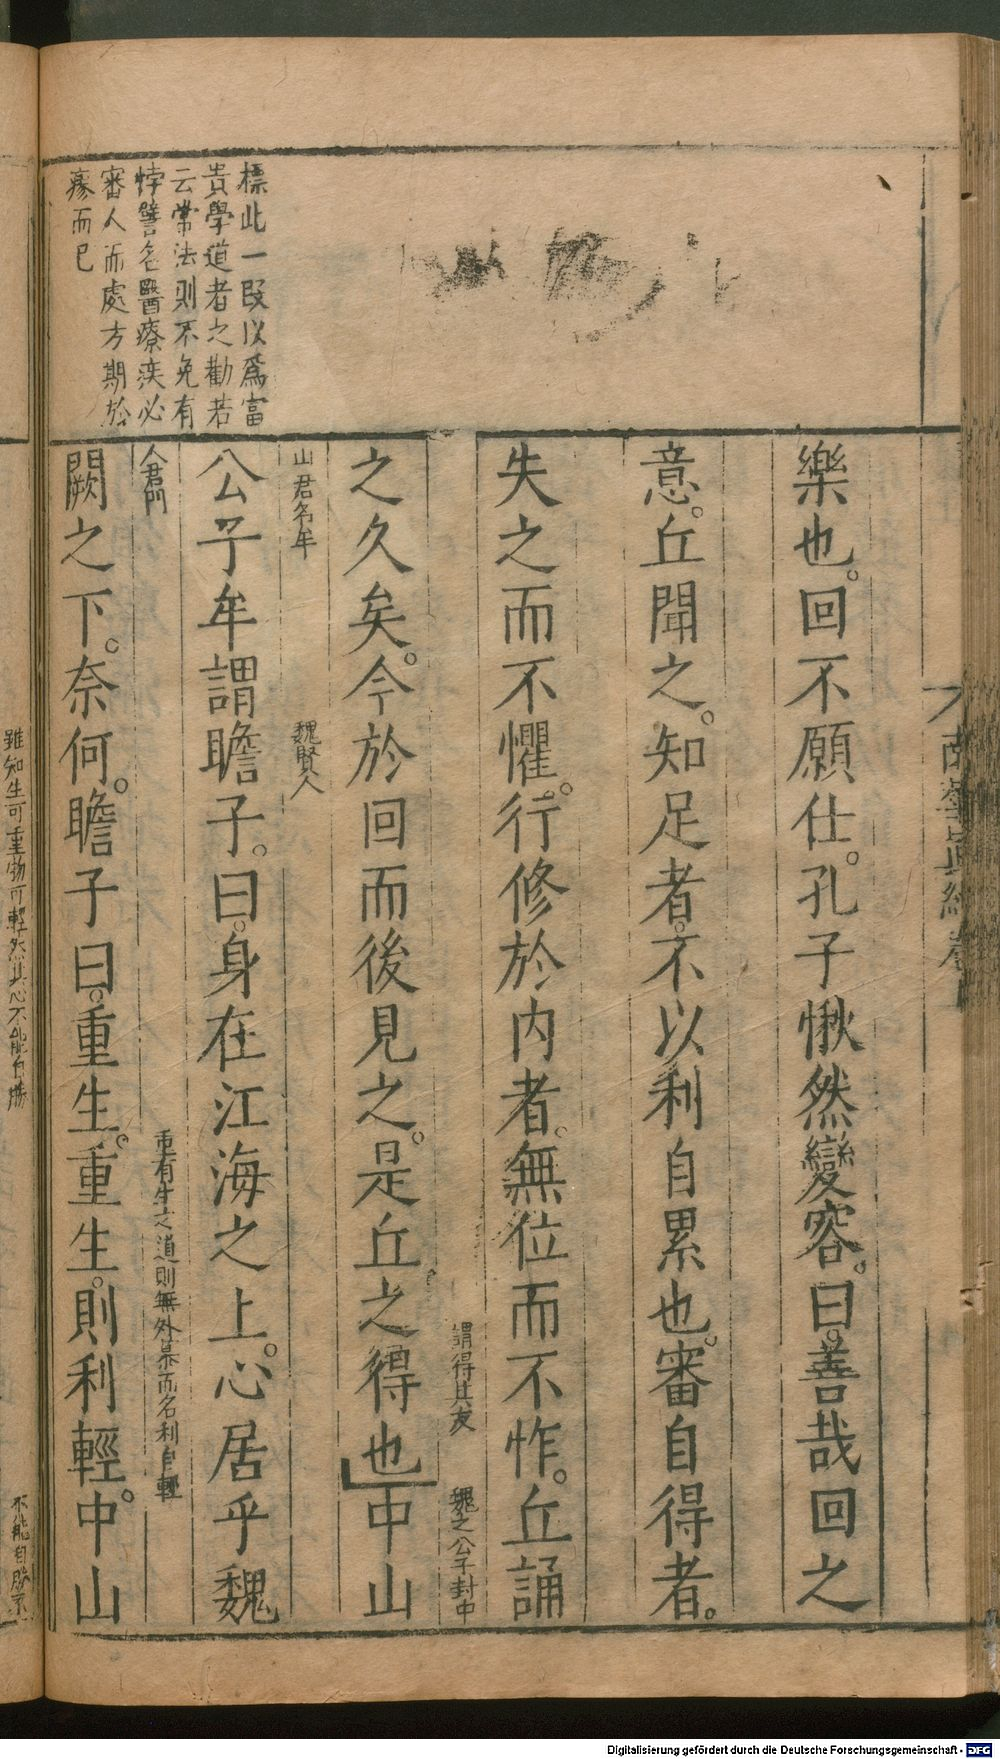 南華眞經卷
樂也。回不願仕。孔子愀然變容。曰。善哉回之
意。丘聞之。知足者。不以利自累也。審自得者。
失之而不懼。行修於内者。無位而不怍。丘誦
謂得其友
魏之公子封中
之久矣。今於回而後見之。是丘之得也中山
山君名牟
魏賢人
公子牟謂瞻子。曰。身在江海之上。心居乎魏
人君門
重有生之道則無外慕而名利自輕
闕之下。奈何。瞻子曰。重生。重生。則利輕。中山
標此一段以爲富
貴學道者之勸若
云常法則不免有
悖譬名醫療疾必
審人而處方期於
瘳而已
雖知生可重物可輕然其心不能自勝
不能自勝
Digitalisierung gefördert durch die Deutsche Forschungsgemeinschaft - DFG